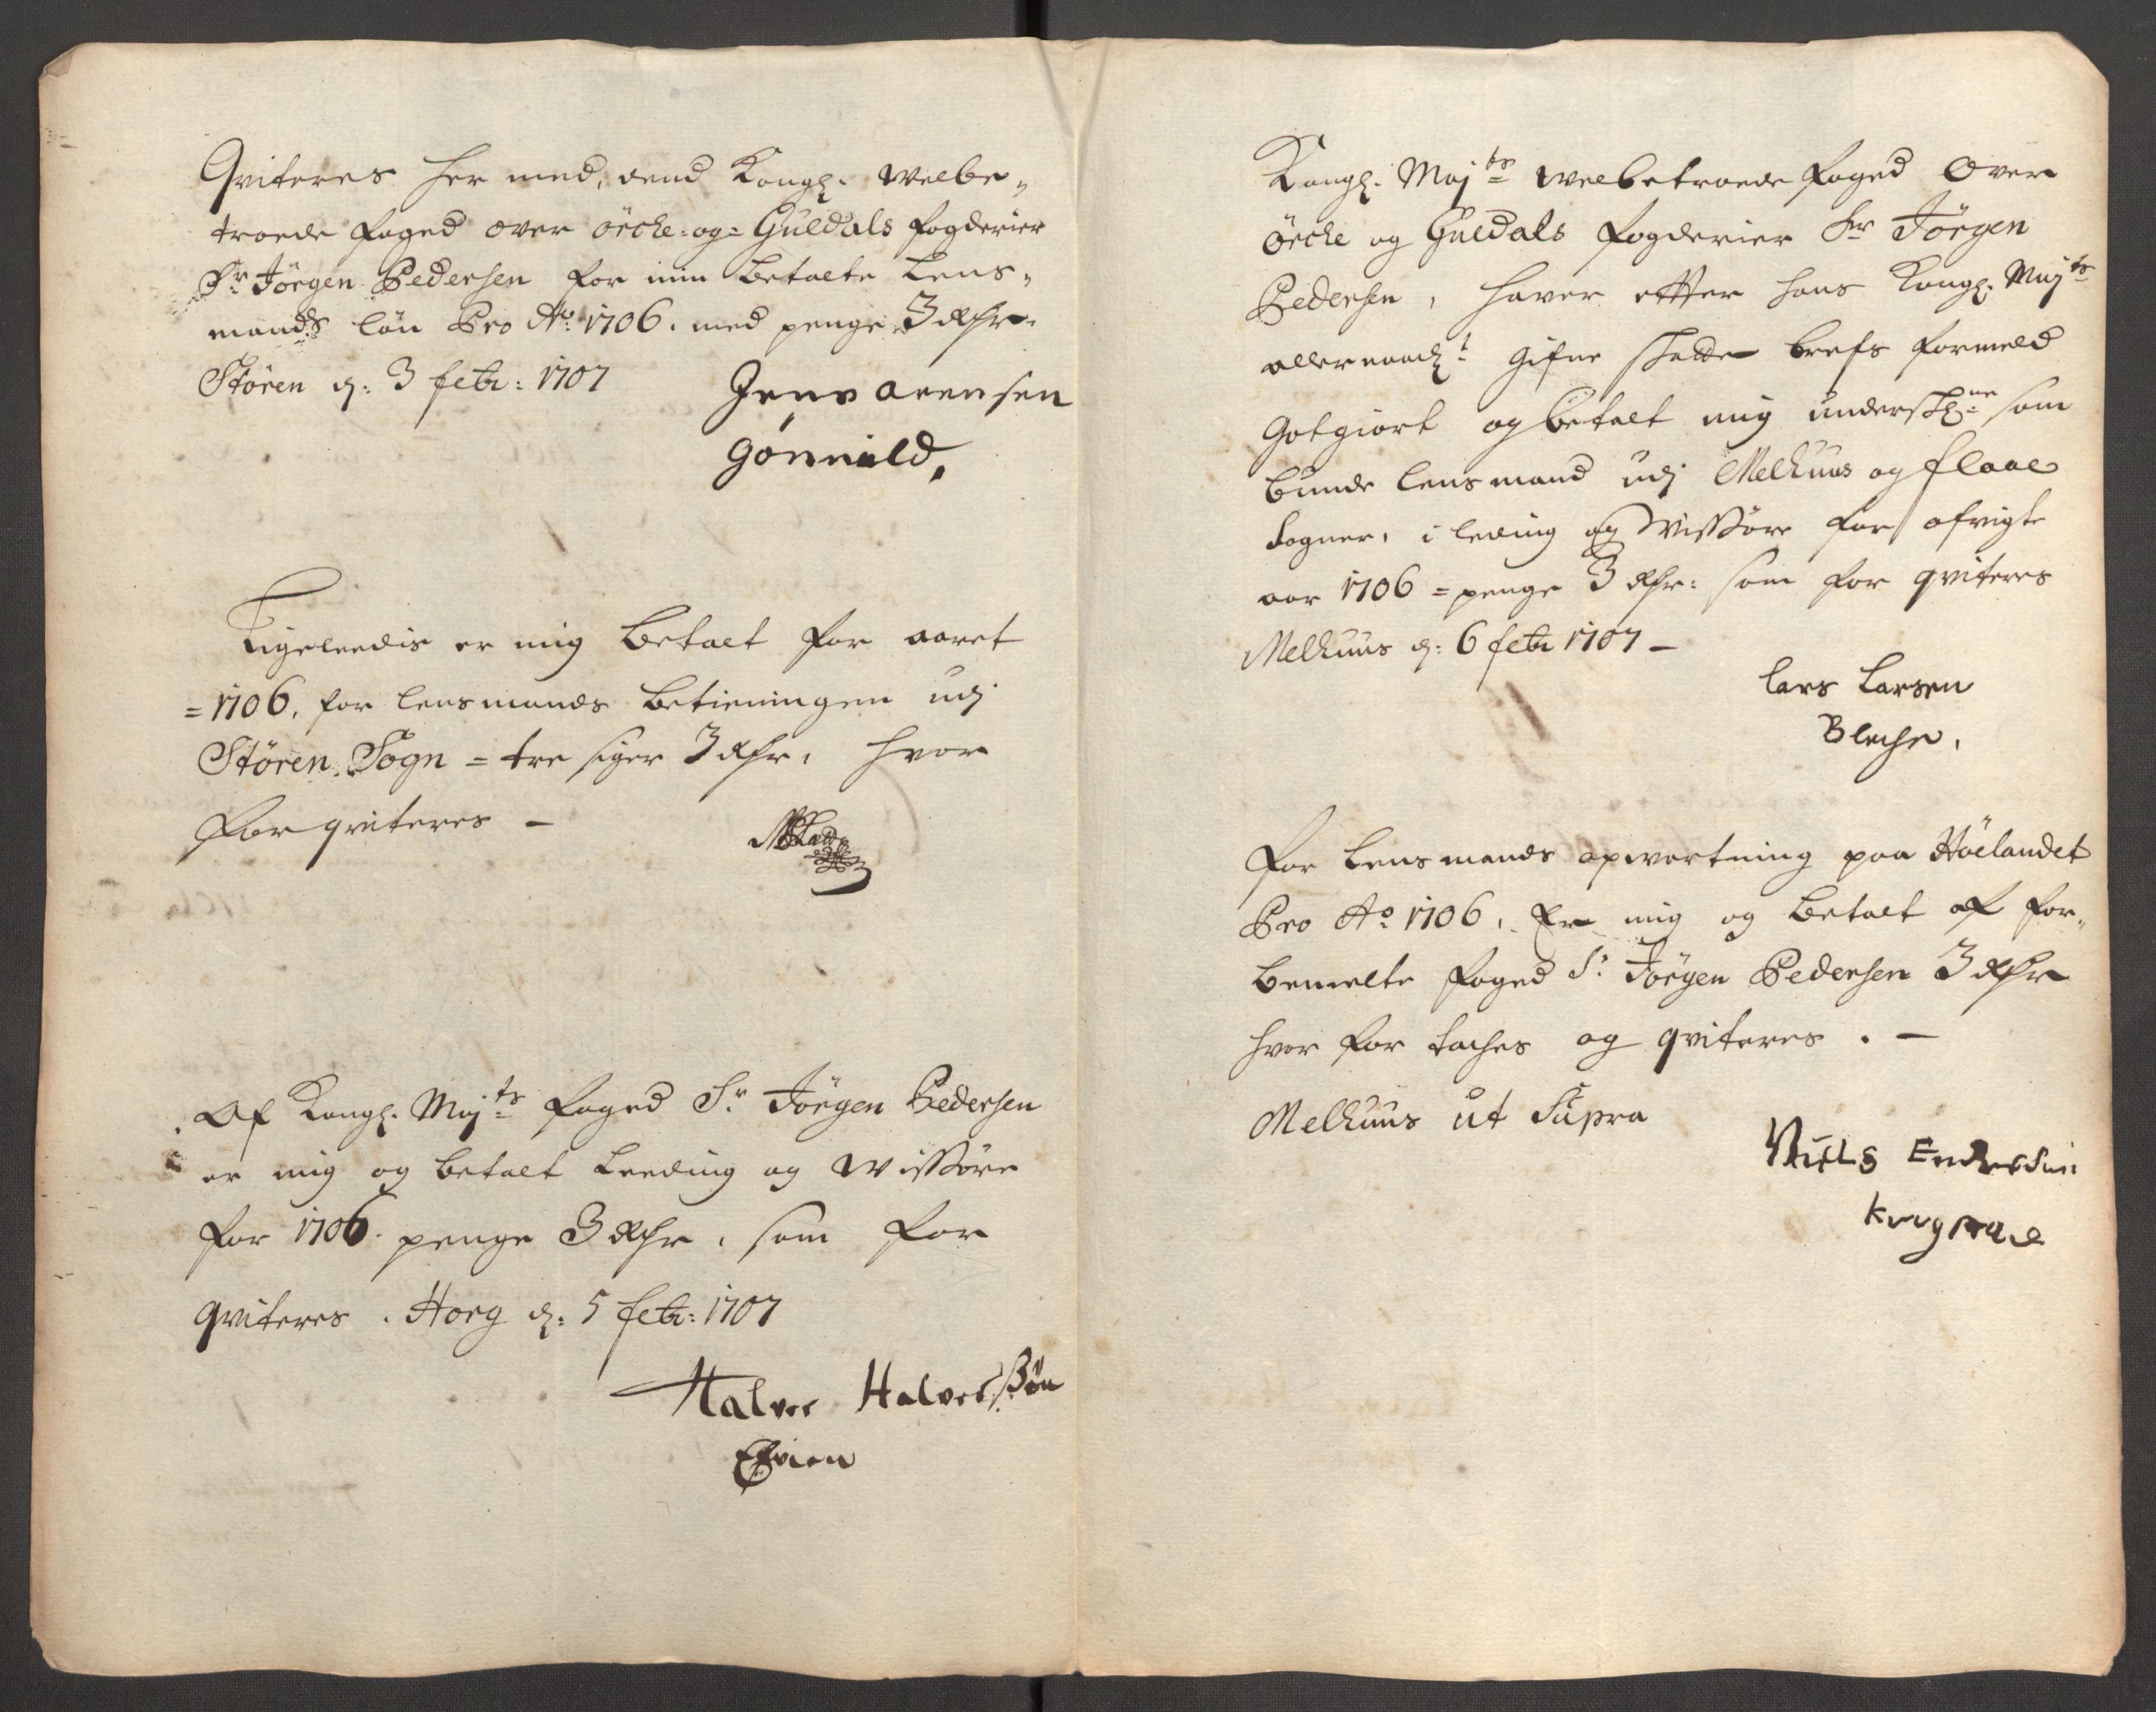 Qviteres her med, dend Kongl. Welbe„
troede foged over örche- og= Guldals fogderier
Sr. Jörgen Pedersen for min betalte Lens„
mands lön Pro Ao. 1706. med penge 3 Rdr.
Stören d: 3 febr: 1707
Jens arensen
gönnild,
Ligeleedis er mig betalt for aaret
=1706, for lensmands betieningen udj
Stören Sogn = tre siger 3 Rdr, hvor
for qviteres –
Af Kongl. Mayts foged Sr. Jörgen Pedersen
er mig og betalt Leeding og Wissöre
for 1706. penge 3 Rdr, som for
qviteres. Horg d: 5 febr: 1707
Halvor Halvorsßön
Kongl. Mayts Welbetroede foged over
örche og Guldals fogderier Sr Jörgen
Pedersen, haver efter hans Kongl. Mayts
allernaadst gifne skatte brefs formeld
Gotgiort og betalt mig underschne som
bunde lensmand udj Melhuus og flaae
Sogner, i leding og Wissöre for afvigte
aar 1706 = penge 3 Rdr: som for qviteres
Melhuus d: 6 febr 1707 –
Lars Larsen
Bleche,
for Lensmands opvartning paa Höelandet
Pro Ao 1706, Er mig og betalt af for„
bemelte foged Sr. Jörgen Pedersen 3 Rdr
hvor for taches og qviteres. –
Melhuus ut Supra
Niels Endersen